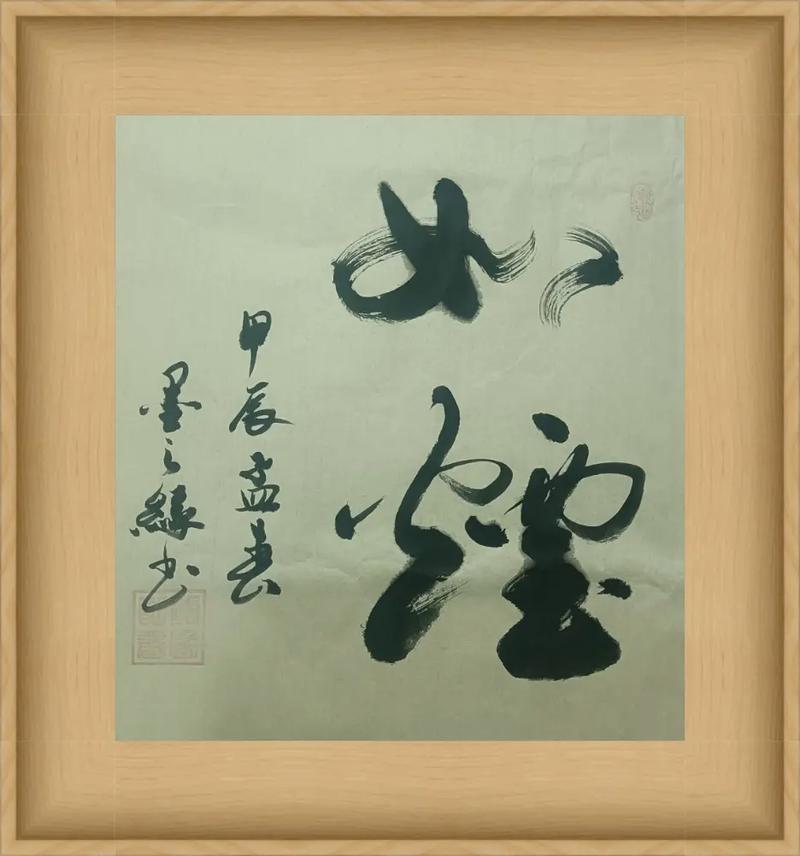 如煙
甲辰孟春
墨之緣书